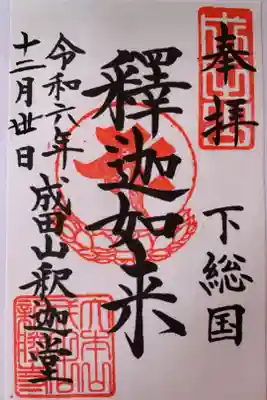 奉拝
下総国
釋迦如来
成田山釈迦堂
令和六年
十二月廿日